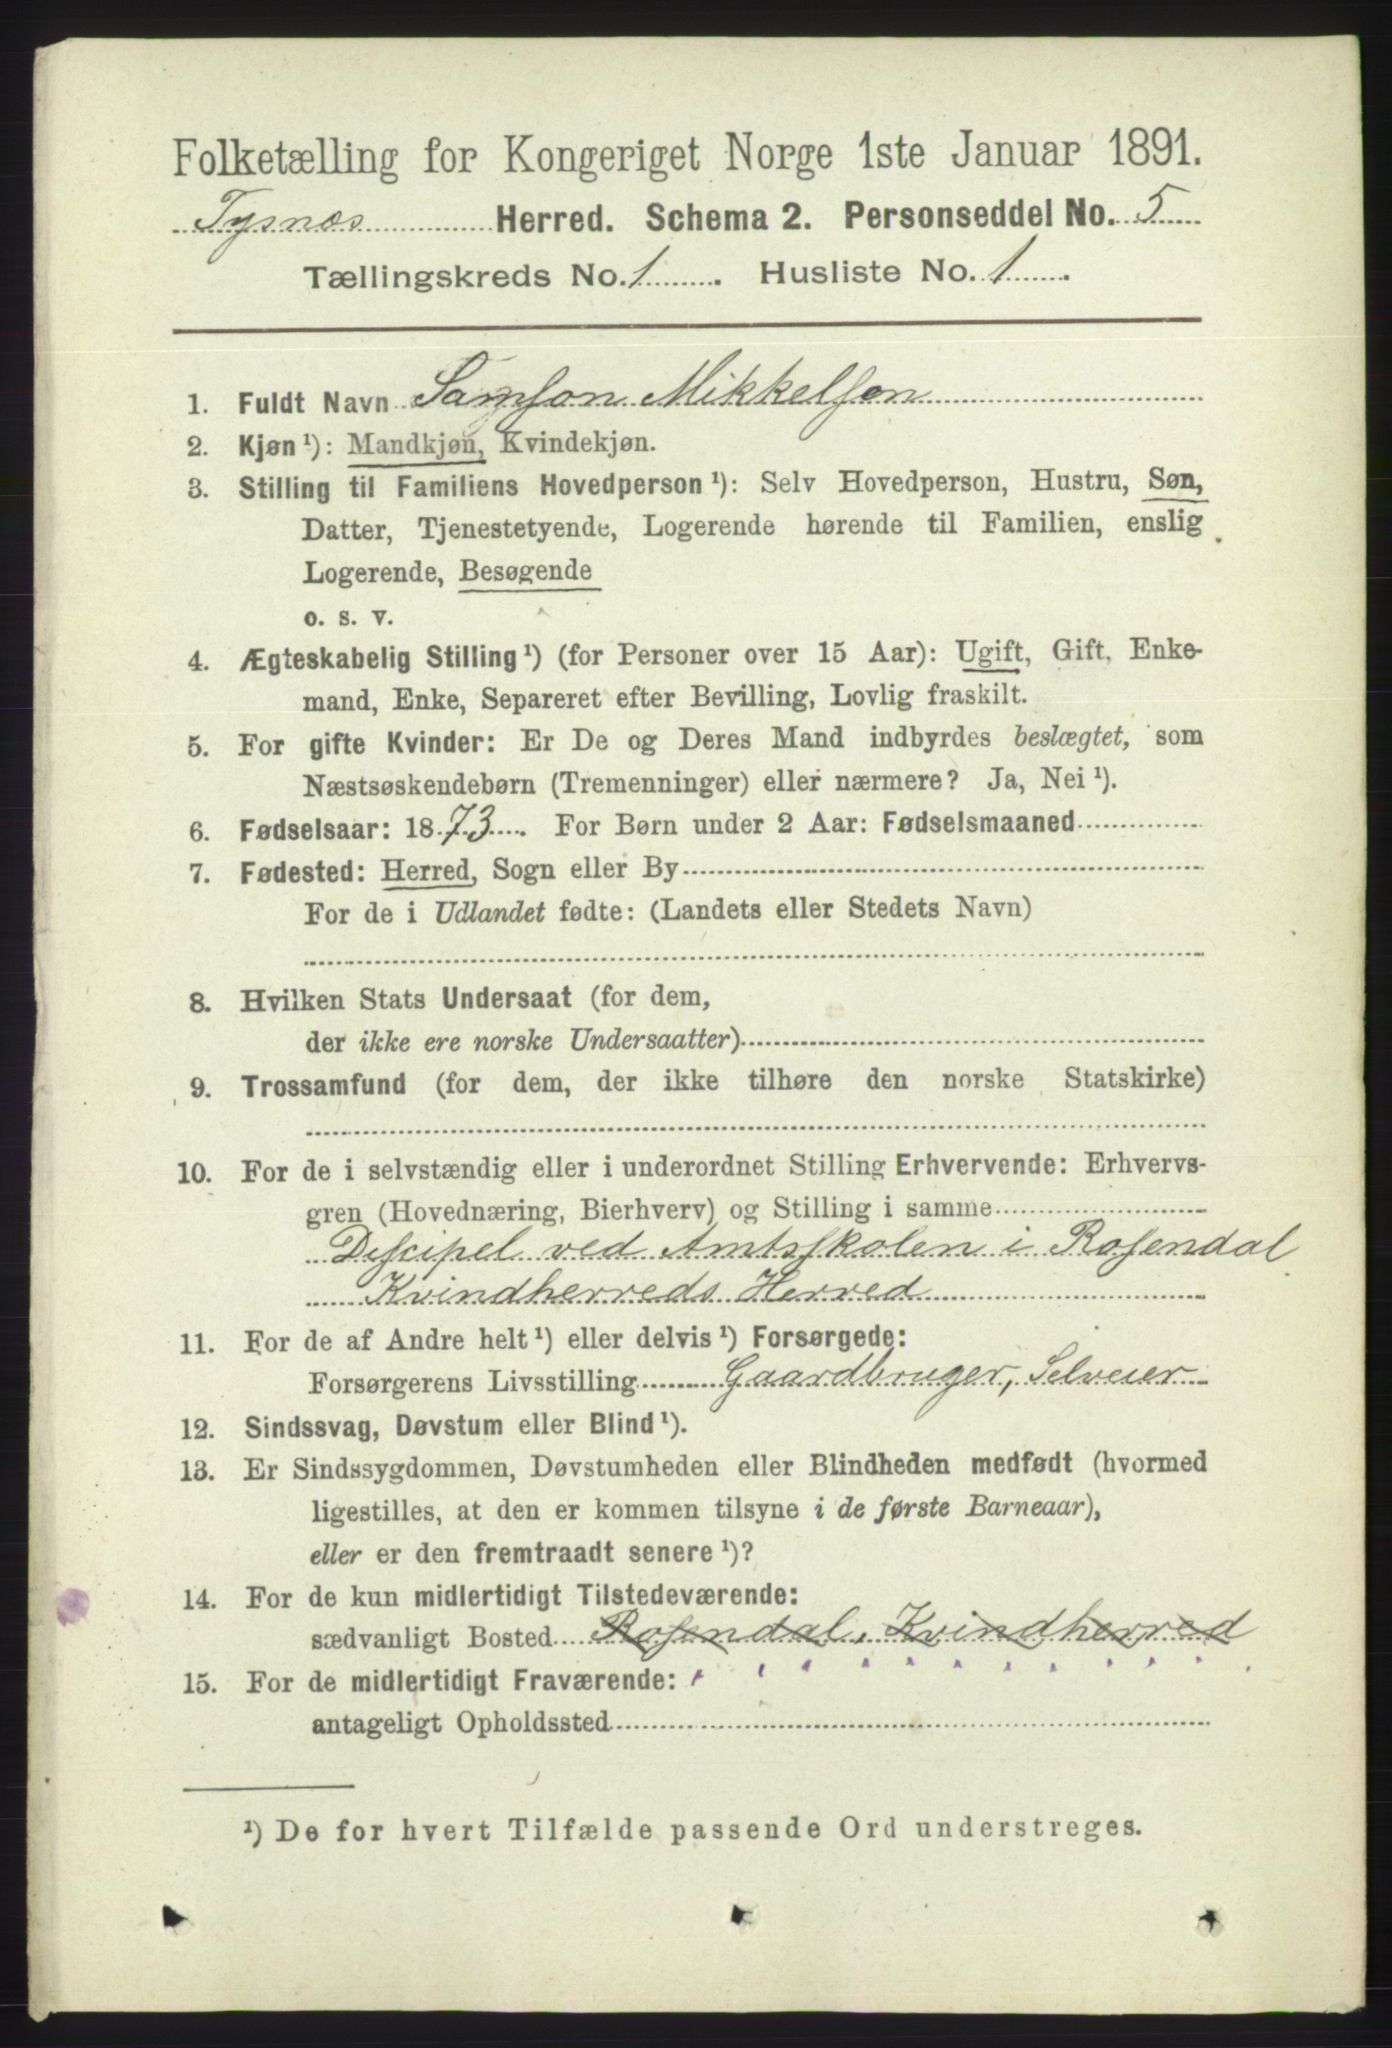 Folketælling for Kongeriget Norge 1ste Januar 1891.
Tysnæs Herred. Schema 2. Personseddel No. 5
Tællingskreds No. 1. Husliste No. 1.
1. Fuldt Navn Samson Mikkelsen
2. Kjøn¹): Mandkjøn, Kvindekjøn.
3. Stilling til Familiens Hovedperson¹): Selv Hovedperson, Hustru, Søn,
Datter, Tjenestetyende, Logerende hørende til Familien, enslig
Logerende, Besøgende
o. s. v.
4. Ægteskabelig Stilling¹) (for Personer over 15 Aar): Ugift, Gift, Enke-
mand, Enke, Separeret efter Bevilling, Lovlig fraskilt.
5. For gifte Kvinder: Er De og Deres Mand indbyrdes beslægtet, som
Næstsøskendebørn (Tremenninger) eller nærmere? Ja, Nei¹).
6. Fødselsaar: 1873. For Børn under 2 Aar: Fødselsmaaned
7. Fødested: Herred, Sogn eller By
For de i Udlandet fødte: (Landets eller Stedets Navn)
8. Hvilken Stats Undersaat (for dem,
der ikke ere norske Undersaatter)
9. Trossamfund (for dem, der ikke tilhøre den norske Statskirke)
10. For de i selvstændig eller i underordnet Stilling Erhvervende: Erhvervs-
gren (Hovednæring, Bierhverv) og Stilling i samme
Discipel ved Amtsskolen i Rosendal
Kvindherreds Herred
11. For de af Andre helt¹) eller delvis¹) Forsørgede:
Forsørgerens Livsstilling Gaardbruger, Selveier
12. Sindssvag, Døvstum eller Blind¹).
13. Er Sindssygdommen, Døvstumheden eller Blindheden medfødt (hvormed
ligestilles, at den er kommen tilsyne i de første Barneaar),
eller er den fremtraadt senere¹)?
14. For de kun midlertidigt Tilstedeværende:
sædvanligt Bosted Rosendal, Kvindherred
15. For de midlertidigt Fraværende:
antageligt Opholdssted
¹) De for hvert Tilfælde passende Ord understreges.